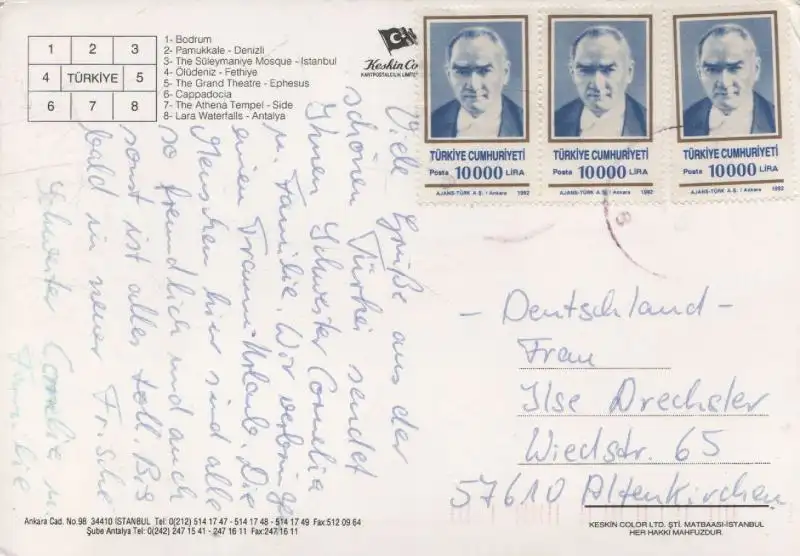 1 2 3
4 TÜRKİYE 5
6 7 8
1- Bodrum
2- Pamukkale - Denizli
3- The Süleymaniye Mosque - Istanbul
4- Ölüdeniz - Fethiye
5- The Grand Theatre - Ephesus
6- Cappadocia
7- The Athena Tempel - Side
8- Lara Waterfalls - Antalya
Keskin Co
KARTPOSTALCILIK LIMITE
TÜRKİYE CUMHURİYETİ
Posta 10000 LİRA
AJANS-TÜRK A.Ş. / Ankara 1992
TÜRKİYE CUMHURİYETİ
Posta 10000 LİRA
AJANS-TÜRK A.Ş. / Ankara 1992
TÜRKİYE CUMHURİYETİ
Posta 10000 LİRA
AJANS-TÜRK A.Ş. / Ankara 1992
Viele Grüße aus der
schönen Türkei sendet
Ihnen Schwester Cornelia
u. Familie. Wir verbringen
einen Traum-Urlaub. Die
Menschen hier sind alle
so freundlich und auch
sonst ist alles toll. Bis
bald in neuer Frische
Schwester Cornelia u.
Familie
- Deutschland -
Frau
Ilse Drechsler
Wiedstr. 65
57610 Altenkirchen
Ankara Cad. No.98 34410 İSTANBUL Tel: 0(212) 514 17 47 - 514 17 48 - 514 17 49 Fax:512 09 64
Şube Antalya Tel: 0(242) 247 15 41 - 247 16 11 Fax:247 16 11
KESKIN COLOR LTD. ŞTİ. MATBAASI-İSTANBUL
HER HAKKI MAHFUZDUR.